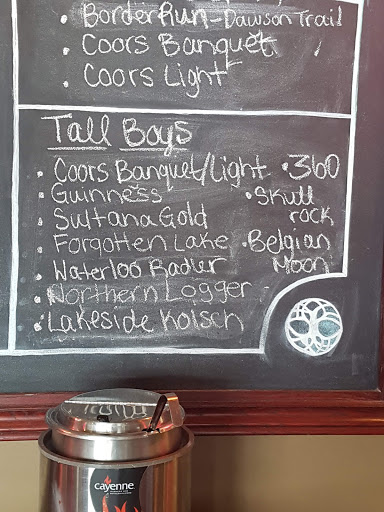 Border Run-Dawson Trail
• Coors Banquet
• Coors Light
Tall Boys
• Coors Banquet/Light • 360
• Guinness • Skull
• Sultana Gold rock
• Forgotten Lake • Belgian
• Waterloo Radler Moon
• Northern Logger
• Lakeside Kolsch
cayenne